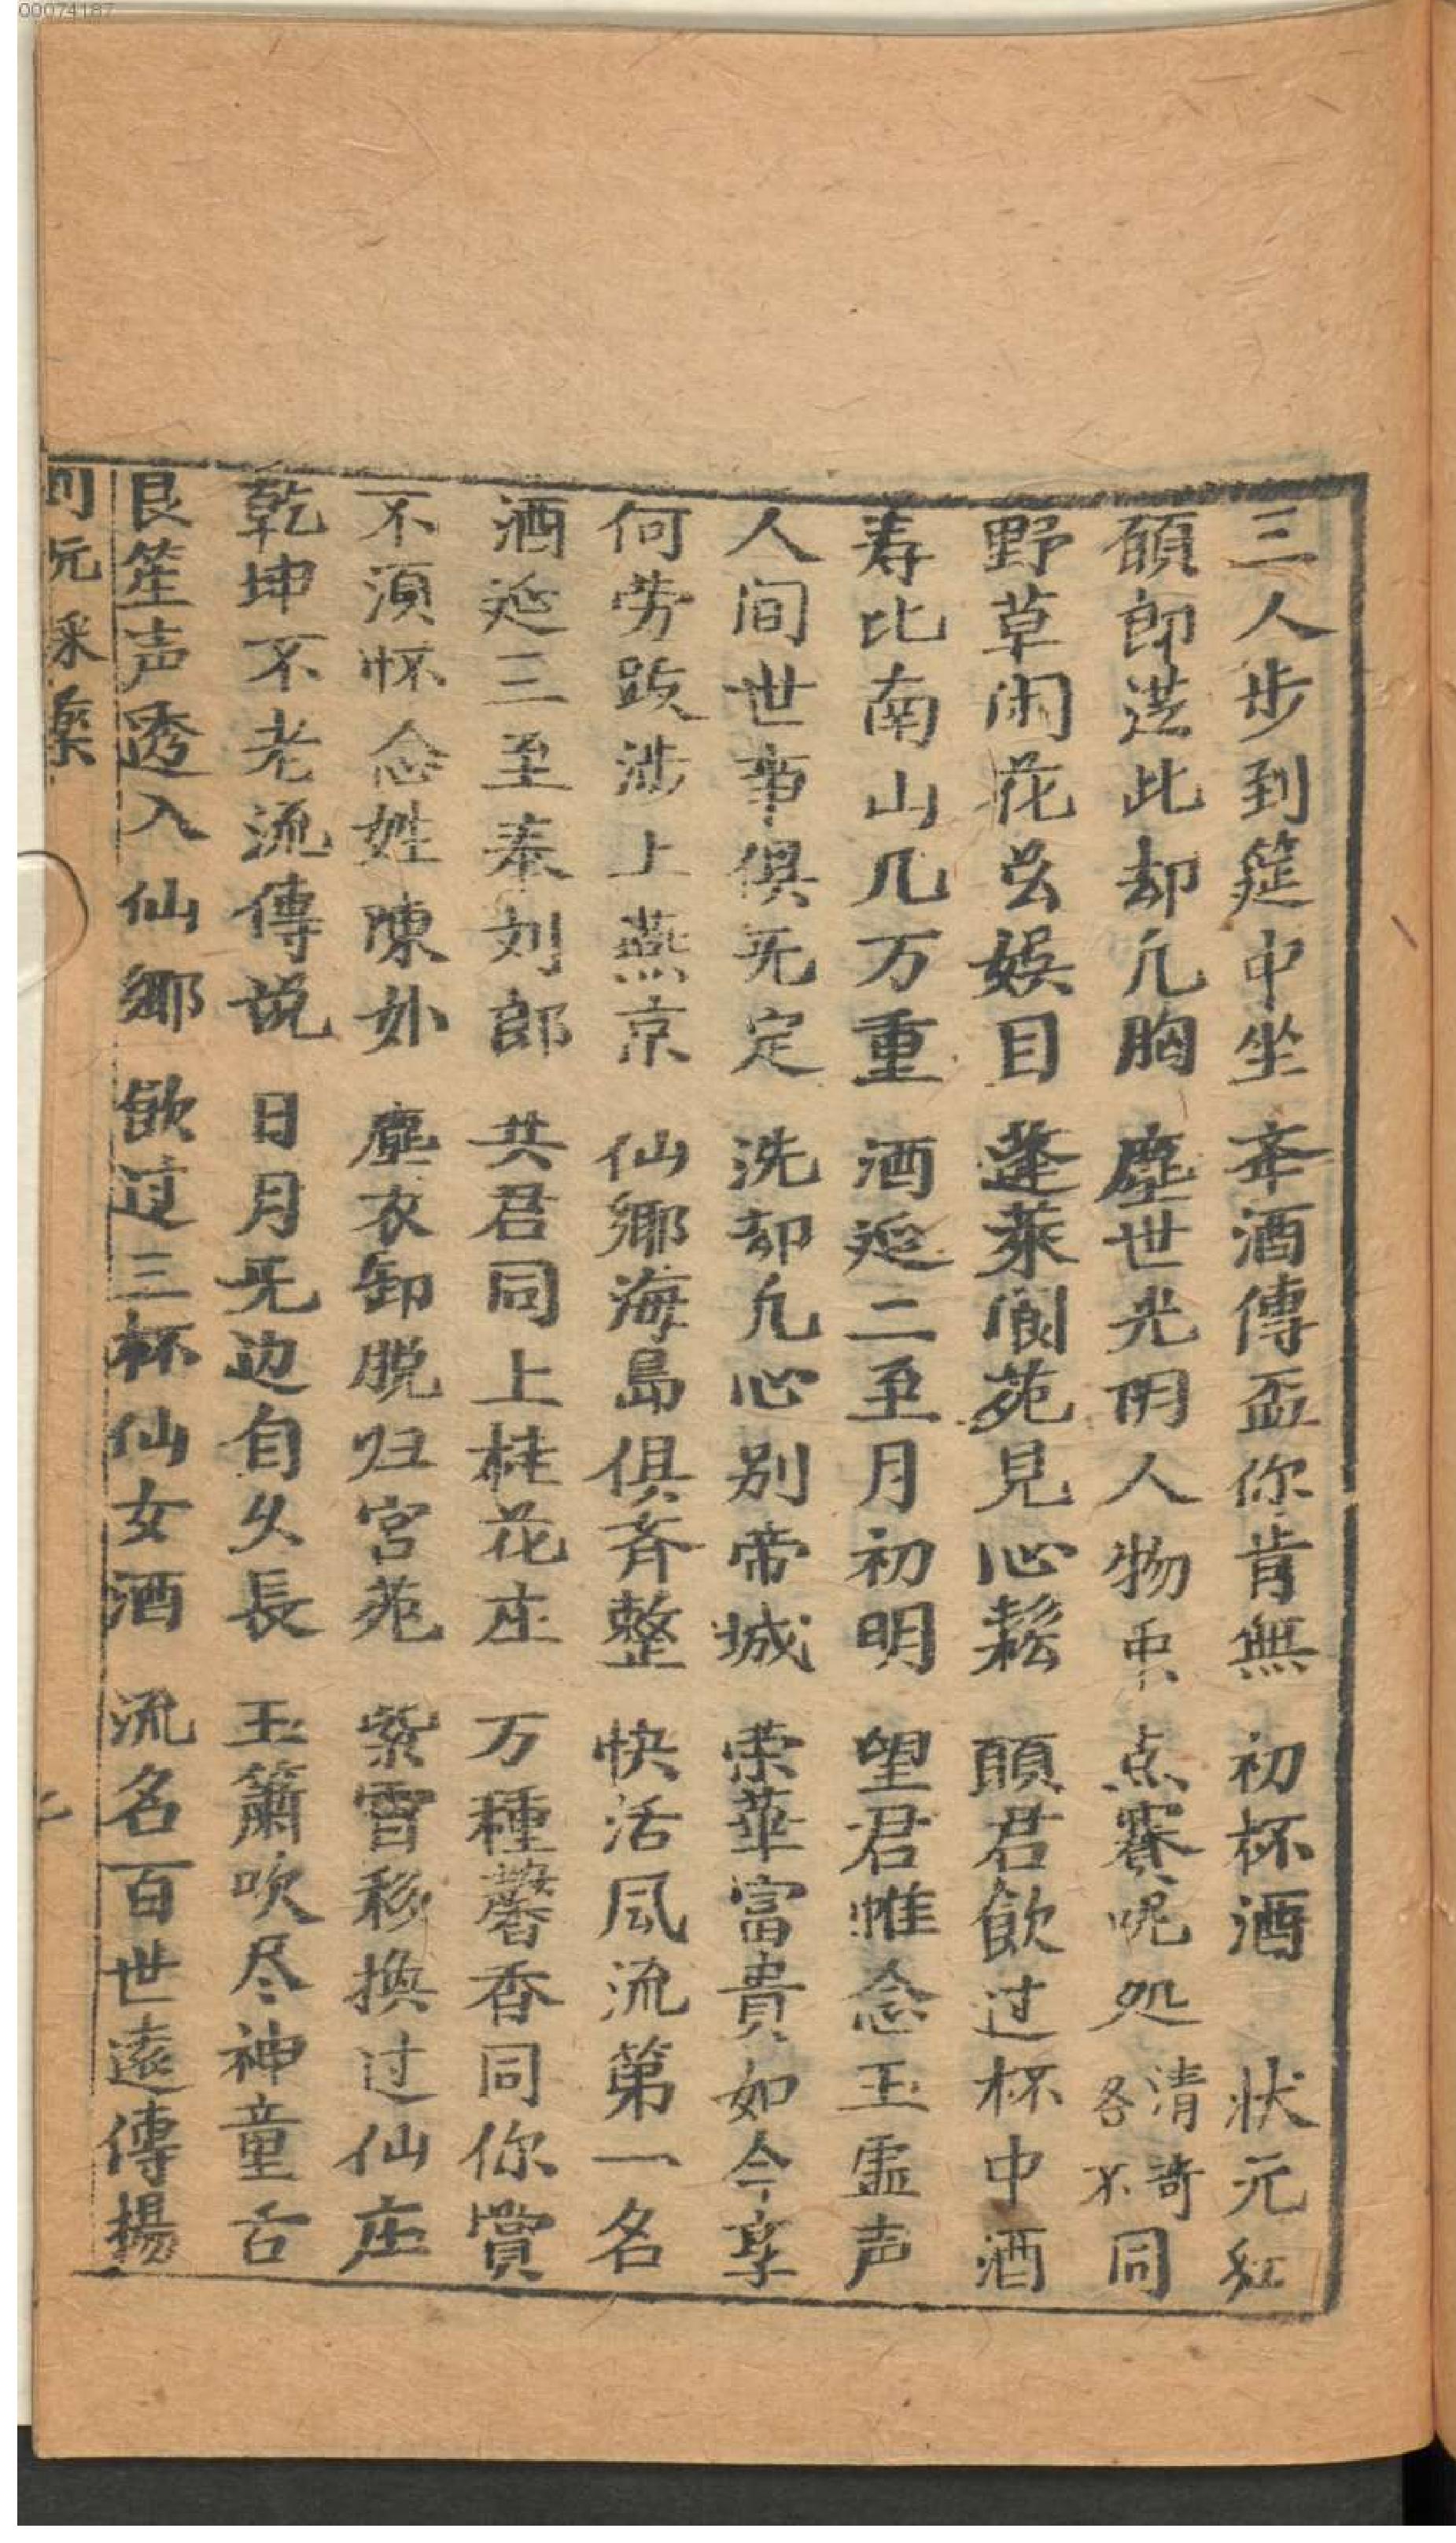 00074187
三人步到筵中坐 斉酒傳盃你肯無 初杯酒 状元紅
頋郎送此却凢胸 塵世光阴人物衆 点賽呢処 清奇各不同
野草闲花么娱目 蓬萊阆苑見心鬆 頋君飲过杯中酒
寿比南山几万重 酒延二至月初明 望君惟念玉虚声
人间世事俱旡定 洗却凢心別帝城 荣華富貴如今享
何劳跋涉上燕京 仙鄉海島俱斉整 快活风流第一名
酒延三至奉刘郎 共君同上桂花庄 万種馨香同你賞
不須怀念姓陳妙 塵衣卸脱归宮苑 紫霄移換过仙庄
乾坤不老流傳說 日月旡边自久長 玉簫吹尽神童舌
艮笙声透入仙鄉 飲过三杯仙女酒 流名百世遠傳揚
刘阮采藥